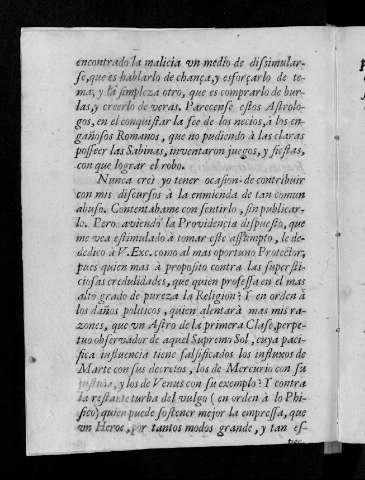 encontrado la malicia vn medio de dissimular-
se, que es hablarlo de chança, y esforçarlo de te-
ma, y la simpleza otro, que es comprarlo de bur-
las, y creerlo de veras. Parecense estos Astrolo-
gos, en el conquistar la fee de los necios, à los en-
gañosos Romanos, que no pudiendo à las claras
posseer las Sabinas, inventaron juegos, y fiestas,
con que lograr el robo.
Nunca creì yo tener ocasion de contribuir
con mis discursos à la enmienda de tan comun
abuso. Contentabame con sentirlo, sin publicar-
lo. Pero aviendo la Providencia dispuesto, que
me vea estimulado à tomar este assumpto, le de-
dedico à V. Exc. como al mas oportuno Protector,
pues quien mas à proposito contra las supersti-
ciosas credulidades, que quien professa en el mas
alto grado de pureza la Religion? Y en orden à
los daños politicos, quien alentarà mas mis ra-
zones, que vn Astro de la primera Clase, perpe-
tuo observador de aquel Supremo Sol, cuya paci-
fica influencia tiene falsificados los influxos de
Marte con sus decretos, los de Mercurio con su
justicia, y los de Venus con su exemplo? Y contra
la restante turba del vulgo (en orden à lo Phi-
sico) quien puede sostener mejor la empressa, que
vn Heroe, por tantos modos grande, y tan es-